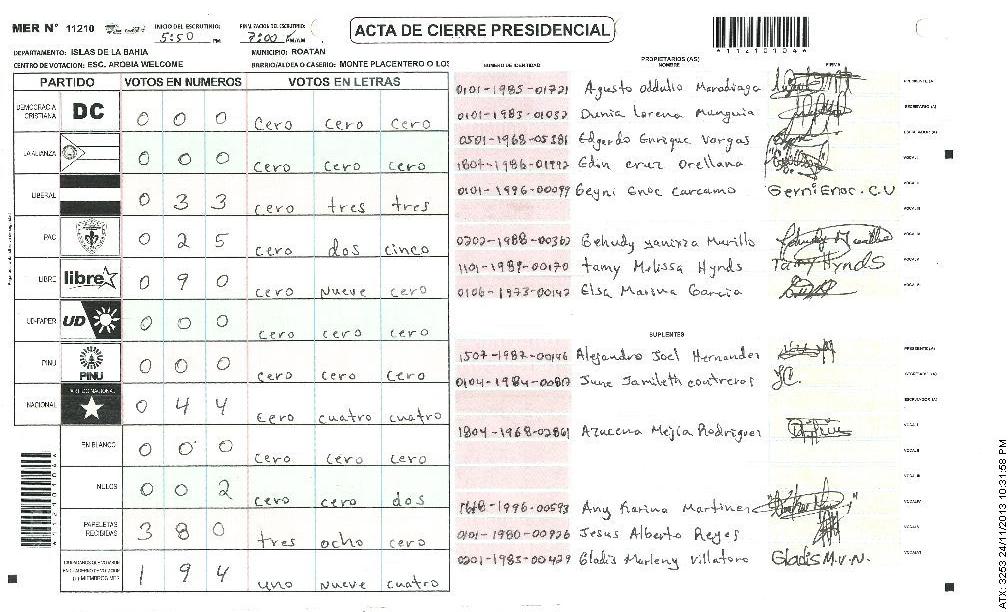 MER N° 11210 INICIO DEL ESCRUTINIO: 5:50 PM FINALIZACION DEL ESCRUTINIO: 7:00 ACTA DE CIERRE PRESIDENCIAL
A11210104A
DEPARTAMENTO: ISLAS DE LA BAHIA MUNICIPIO: ROATAN
CENTRO DE VOTACION: ESC. AROBIA WELCOME BARRIO/ALDEA O CASERIO: MONTE PLACENTERO O LOS
PARTIDO VOTOS EN NUMEROS VOTOS EN LETRAS
DEMOCRACIA CRISTIANA DC 0 0 0 cero cero cero
LA ALIANZA 0 0 0 cero cero cero
LIBERAL 0 3 3 cero tres tres
PAC 0 2 5 cero dos cinco
LIBRE libre 0 9 0 cero nueve cero
UD-FAPER UD 0 0 0 cero cero cero
PINU PINU 0 0 0 cero cero cero
NACIONAL PARTIDO NACIONAL 0 4 4 cero cuatro cuatro
EN BLANCO 0 0 0 cero cero cero
NULOS 0 0 2 cero cero dos
PAPELETAS RECIBIDAS 3 8 0 tres ocho cero
1 9 4 uno nueve cuatro
A11210104A
NUMERO DE IDENTIDAD PROPIETARIOS (AS) NOMBRE FIRMA
0101-1985-01721 Agusto oddulio Maradiaga PRESIDENTE (A)
0101-1983-01032 Dunia Lorena Munguia SECRETARIO (A)
0501-1968-05381 Edgardo Enrique Vargas ESCRUTADOR (A)
1804-1986-01992 Edin cruz Orellana VOCAL I
0101-1996-00099 Geyni Enoc Carcamo Gerni Enoc. C.U VOCAL II
VOCAL III
0202-1988-00362 Gehudy yanirza Murillo VOCAL IV
1101-1989-00170 Tamy Melissa Hynds Tamy Hynds VOCAL V
0106-1973-00142 Elsa Marina Garcia VOCAL VI
SUPLENTES
1507-1987-00146 Alejandro Joel Hernandez PRESIDENTE (A)
0104-1984-00817 June Jamileth contreros J.C. SECRETARIO (A)
ESCRUTADOR (A)
1804-1968-02861 Azucena Mejia Rodriguez VOCAL I
VOCAL II
VOCAL III
-1996-00593 Any Karina Martinez VOCAL IV
0101-1980-00926 Jesus Alberto Reyes VOCAL V
0201-1985-00429 Gladis Marleny Villatoro Gladis M.V.N. VOCAL VI
ATX: 3253 24/11/2013 10:31:58 PM